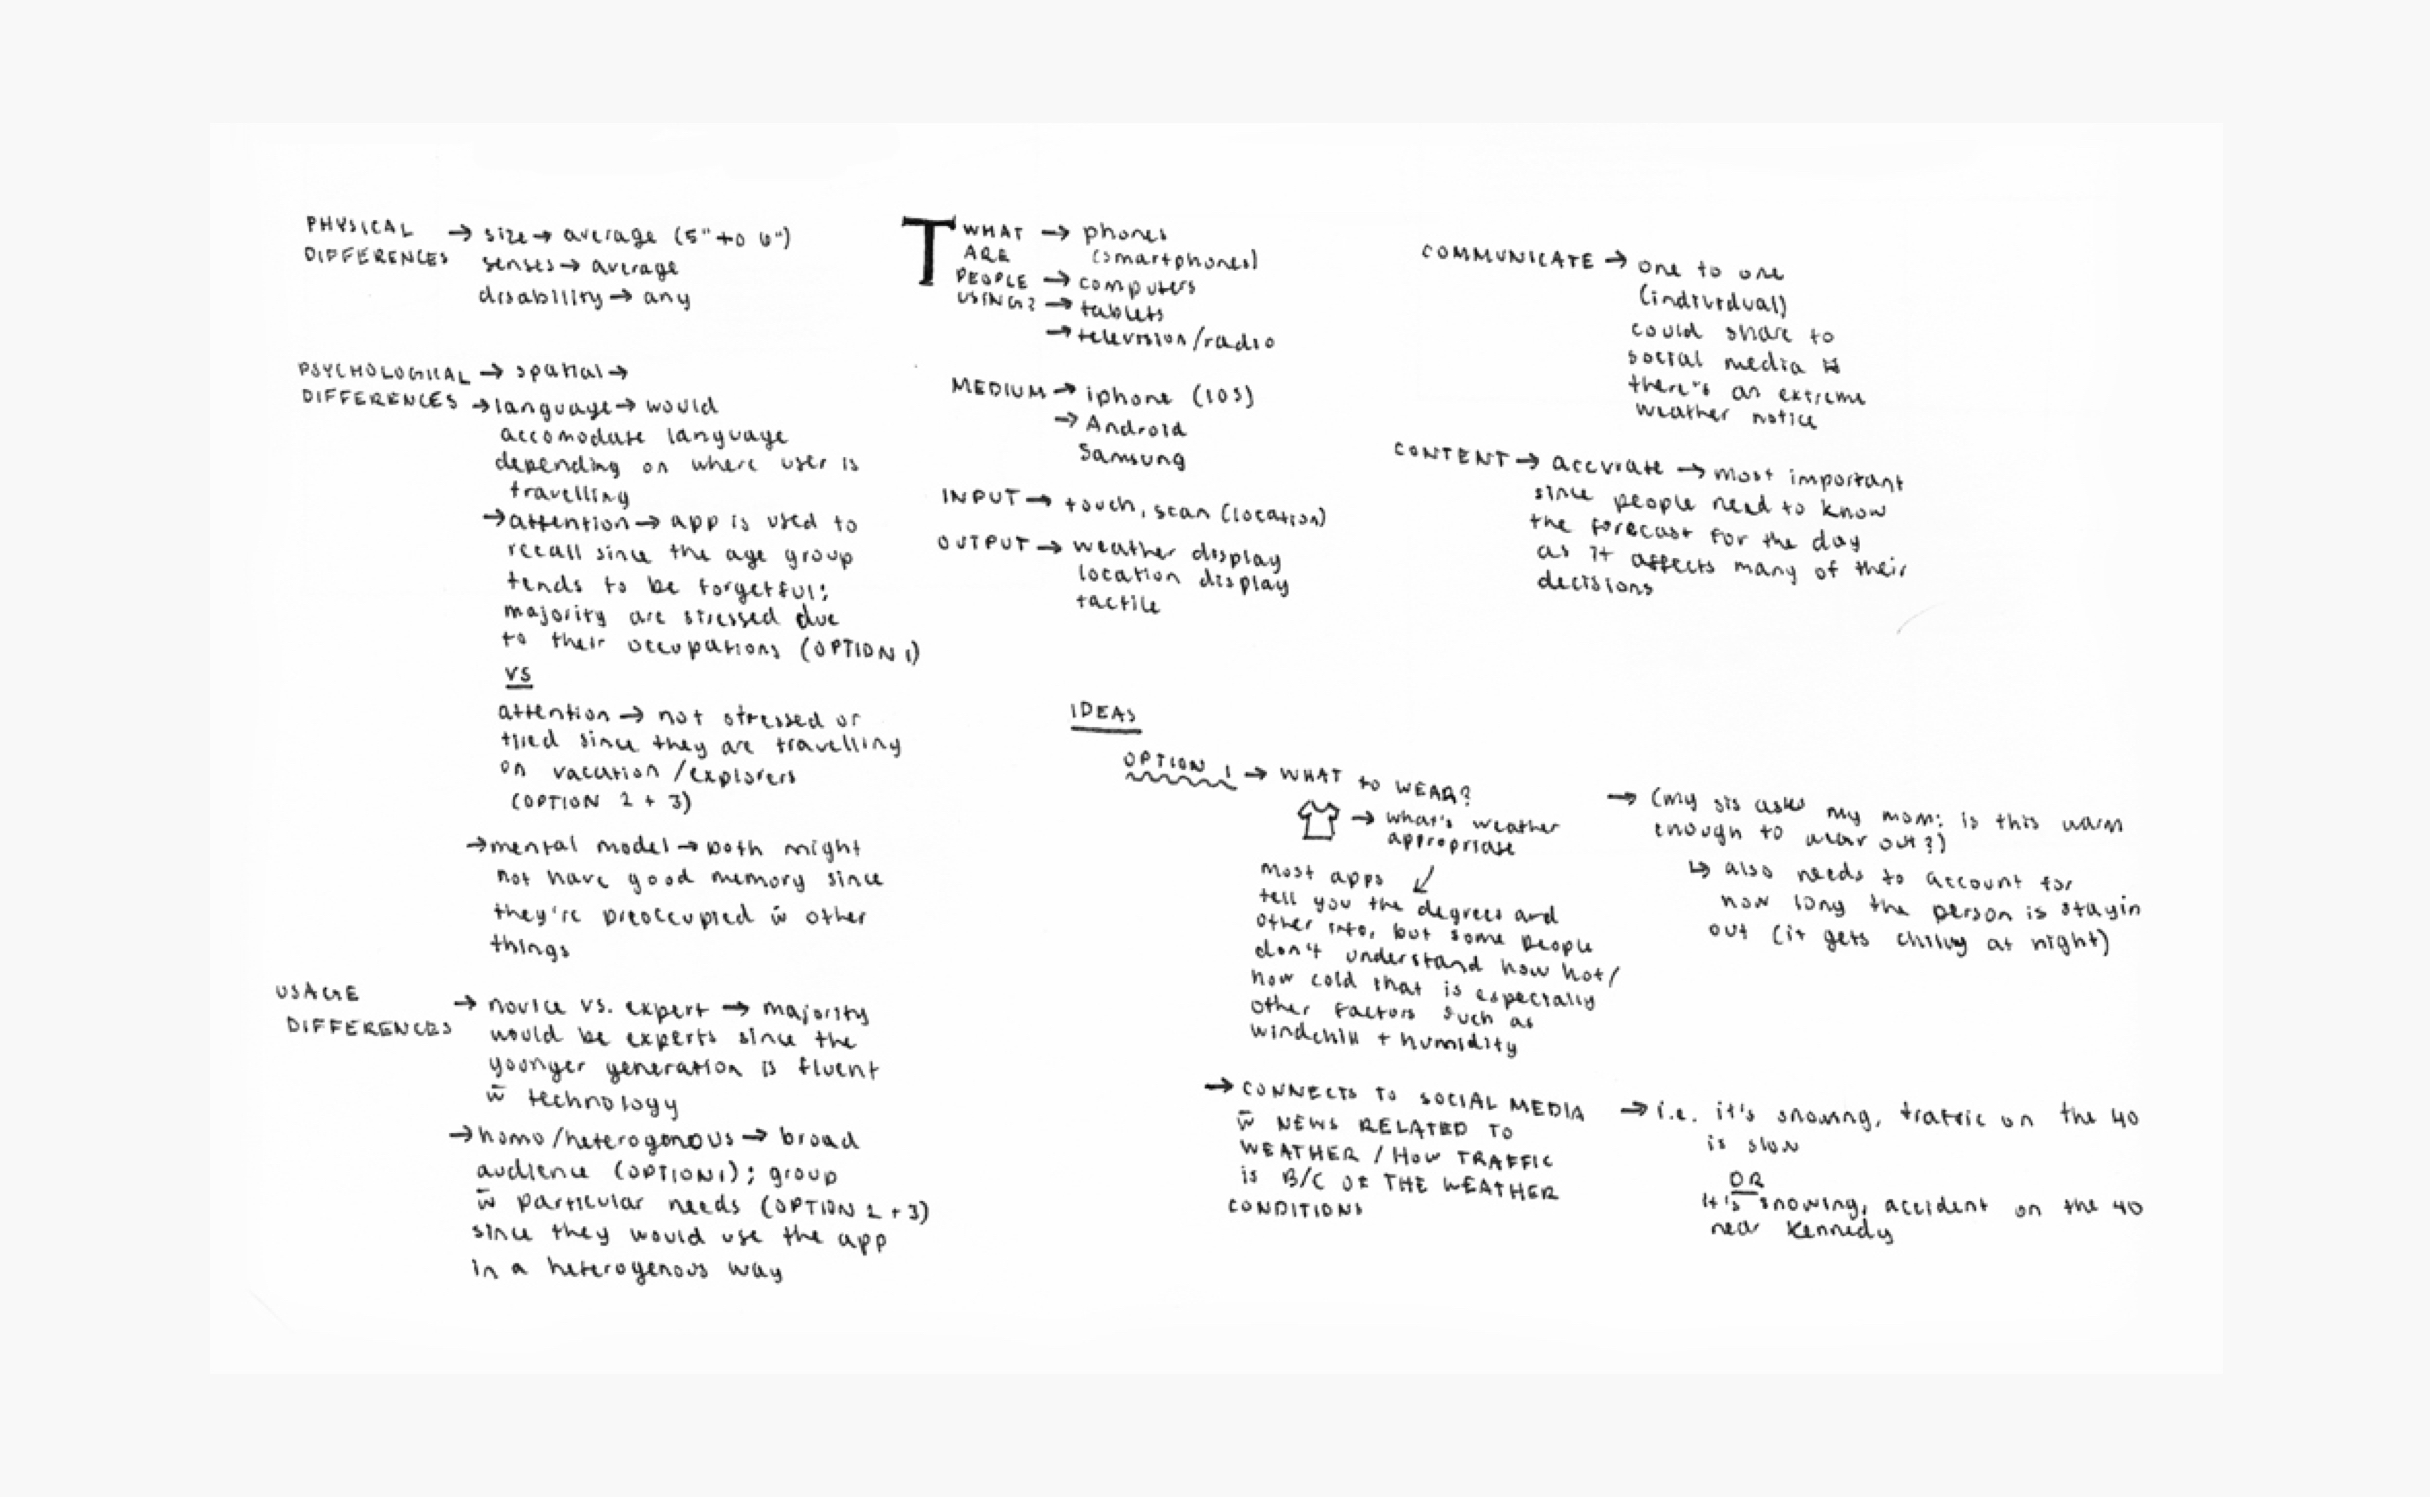 PHYSICAL DIFFERENCES → size → average (5" to 6")
senses → average
disability → any
PSYCHOLOGICAL DIFFERENCES → spatial →
→ language → would
accomodate language
depending on where user is
travelling
→ attention → app is used to
recall since the age group
tends to be forgetful;
majority are stressed due
to their occupations (OPTION 1)
VS
attention → not stressed or
tied since they are travelling
on vacation / explorers
(OPTION 2 + 3)
→ mental model → both might
not have good memory since
they're preoccupied w̄ other
things
USAGE
DIFFERENCES → novice vs. expert → majority
would be experts since the
younger generation is fluent
w̄ technology
→ homo/heterogonous → broad
audience (OPTION 1); group
w̄ particular needs (OPTION 2 + 3)
since they would use the app
in a heterogenous way
T
WHAT → phones
ARE (smartphones)
PEOPLE → computers
USING? → tablets
→ television/radio
MEDIUM → iphone (IOS)
→ Android
Samsung
INPUT → touch, scan (location)
OUTPUT → weather display
location display
tactile
COMMUNICATE → one to one
(individual)
could share to
social media
there's an extreme
weather notice
CONTENT → accurate → most important
since people need to know
the forecast for the day
as it affects many of their
decisions
IDEAS
OPTION 1 → WHAT TO WEAR?
→ what's weather
appropriate
Most apps
tell you the degrees and
other info, but some people
don't understand how hot/
how cold that is especially
other factors such as
windchill + humidity
→ (my sis asks my mom: is this warm
enough to wear out?)
↳ also needs to account for
how long the person is stayin
out (it gets chilly at night)
→ CONNECTS TO SOCIAL MEDIA
w̄ NEWS RELATED TO
WEATHER / HOW TRAFFIC
is B/C OF THE WEATHER
CONDITIONS
→ i.e. it's snowing, traffic on the 40
is slow
OR
it's snowing, accident on the 40
near Kennedy